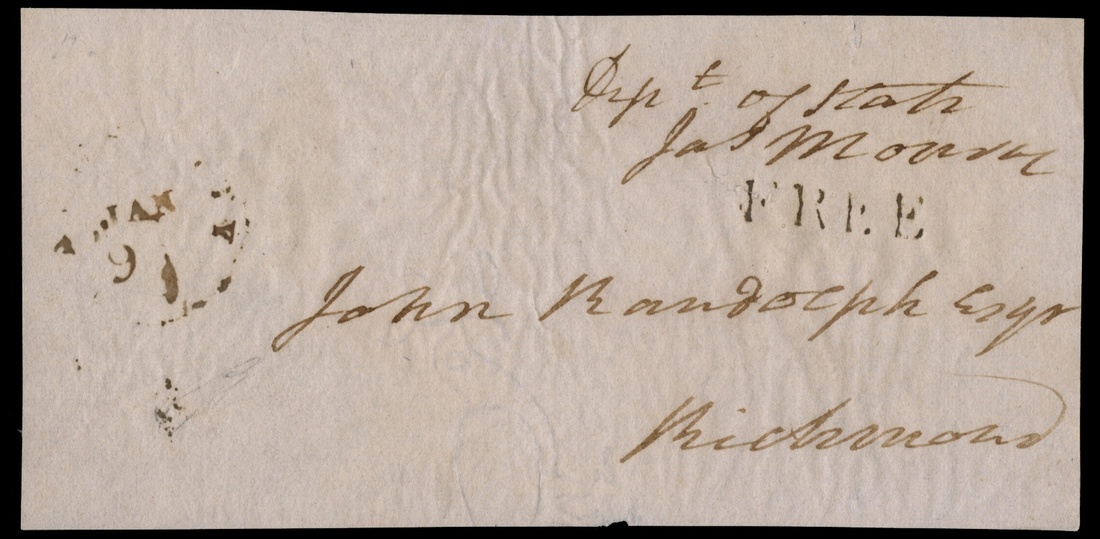 Dept. of State
Jas Monroe
FREE
JAN
9
John Randolph Esqr
Richmond